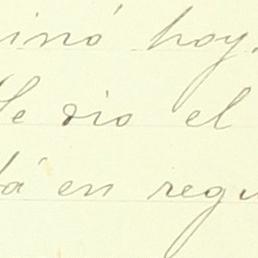 inó hoy.
Se dio el
tá en regu